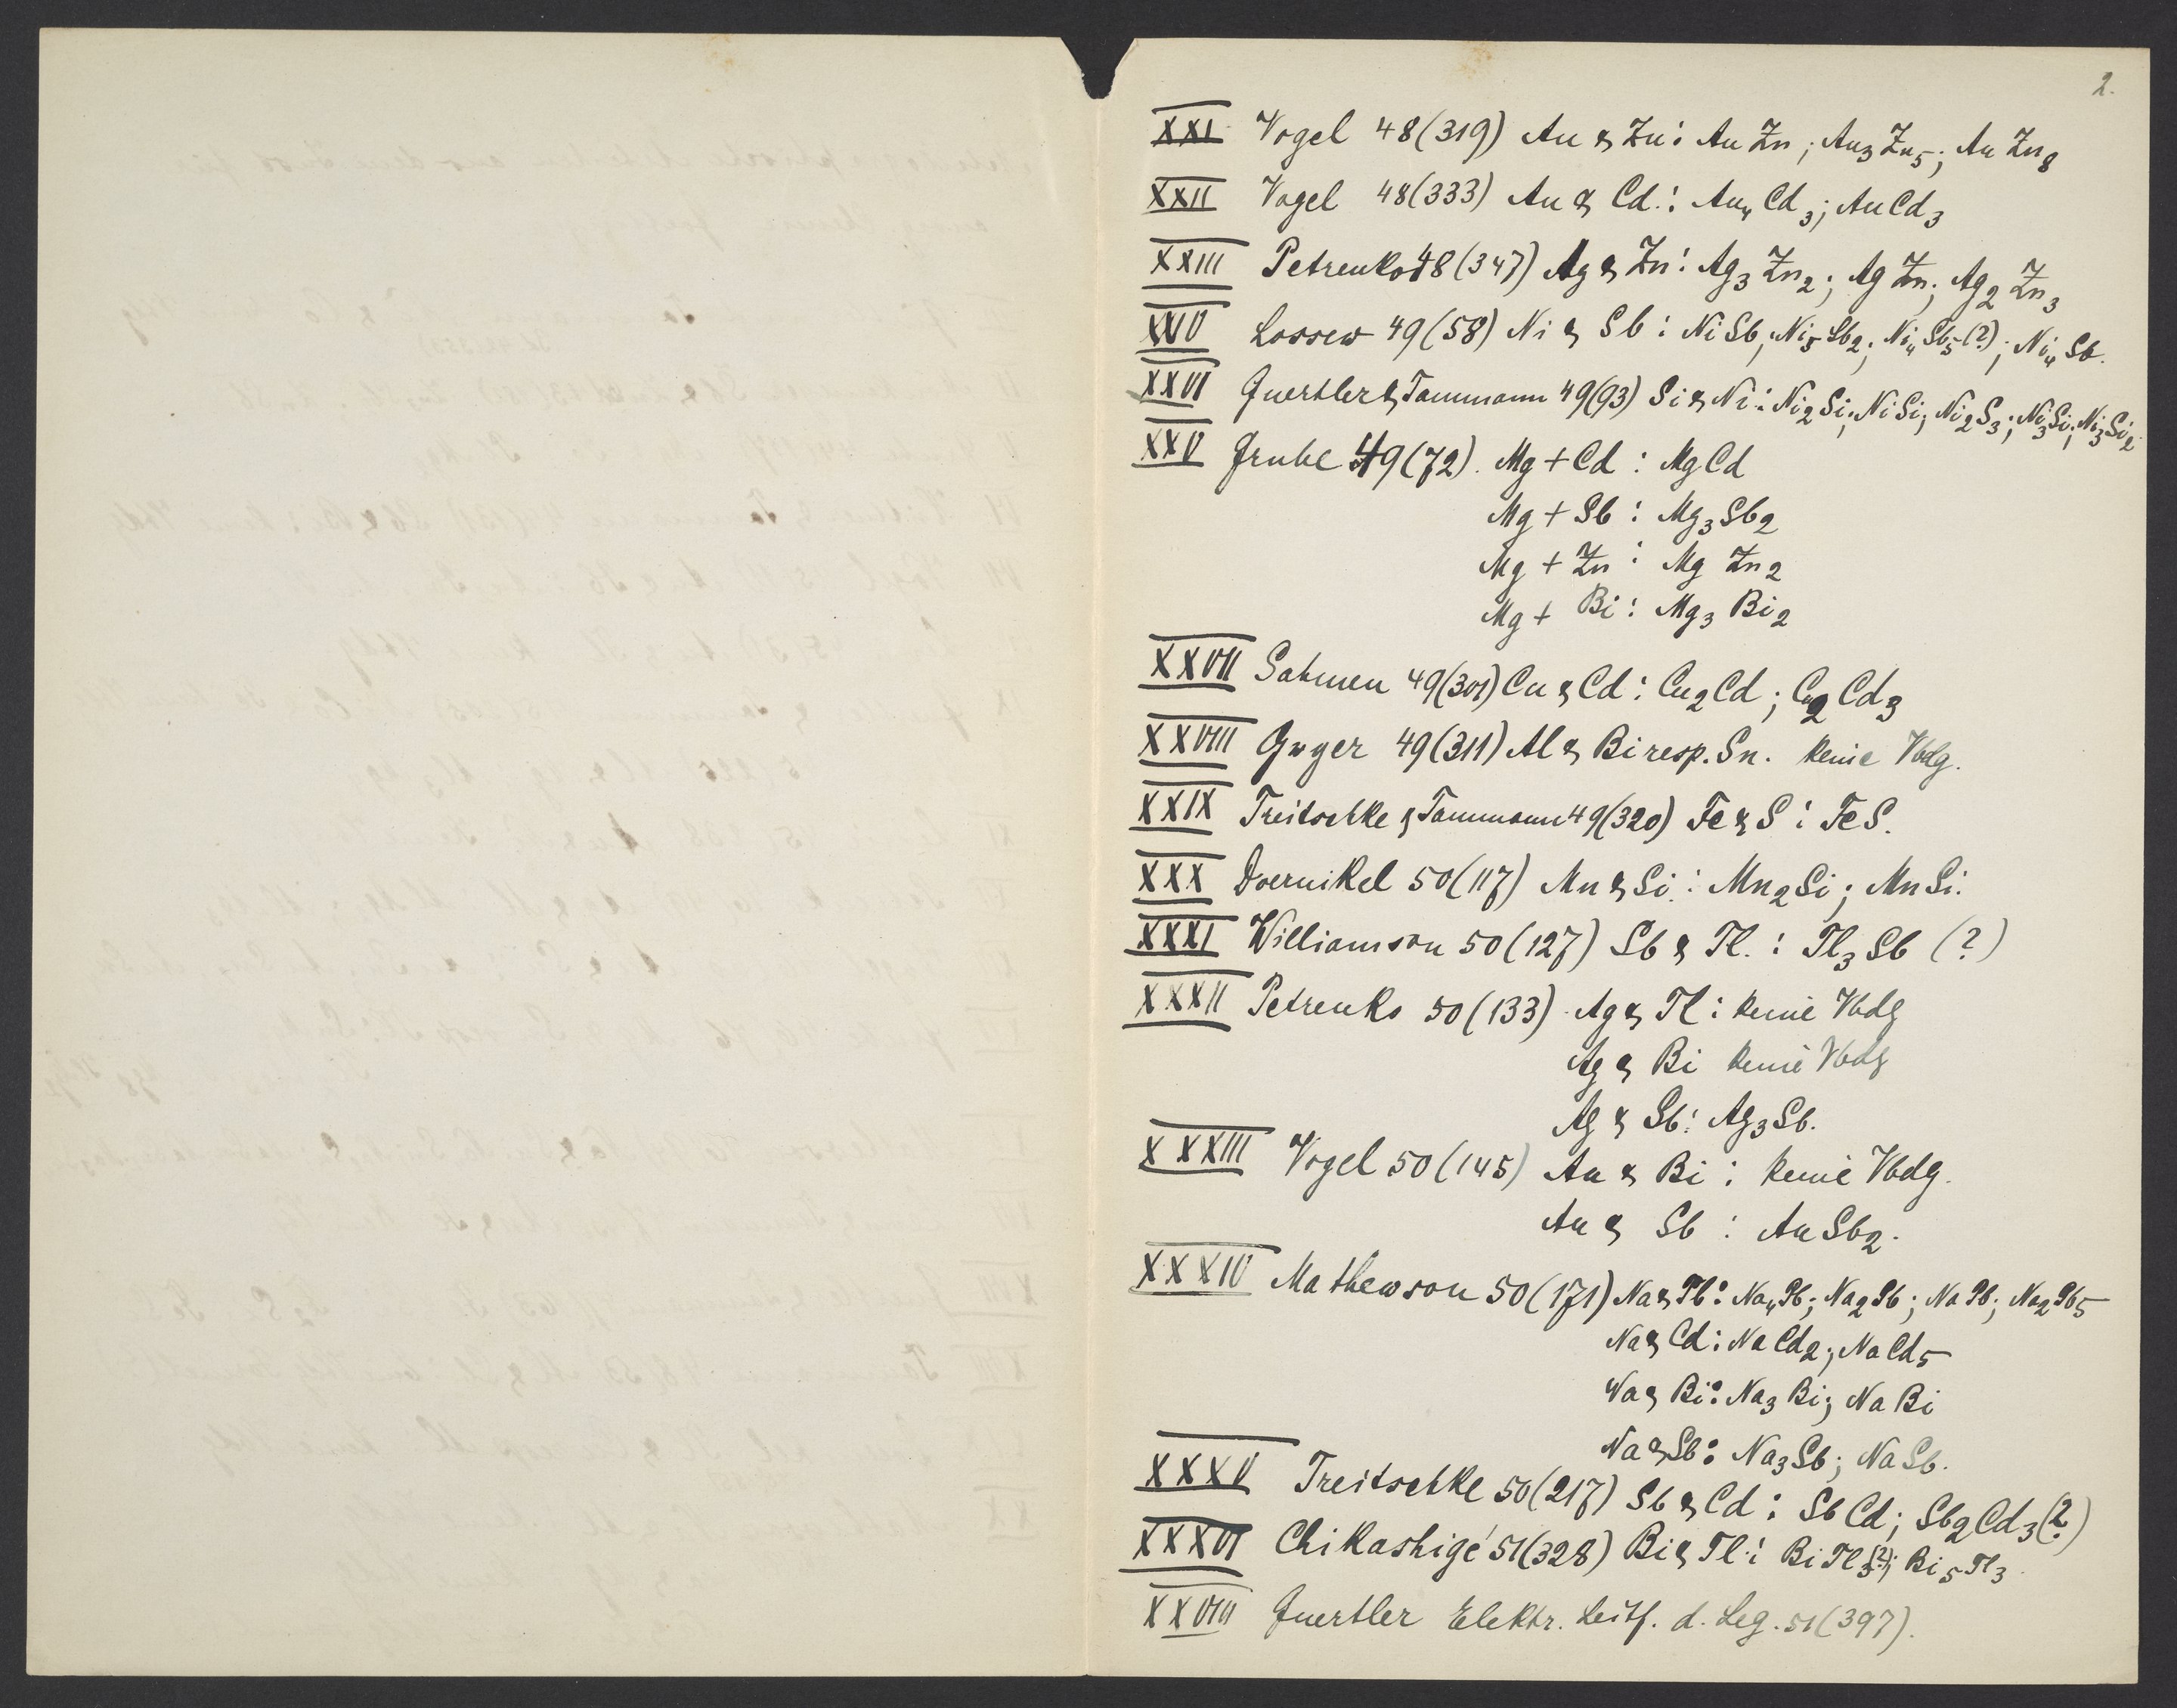 2.
XXI Vogel 48(319) Au & Zn: AuZn; Au3Zn5; AuZn8
XXII Vogel 48(333) Au & Cd: Au4Cd3; AuCd3
XXIII Petrenko 48(347) Ag & Zn: Ag3Zn2; AgZn; Ag2Zn3
XXIV Lossew 49(58) Ni & Sb: NiSb; Ni5Sb2; Ni4Sb5(?); Ni4Sb.
XXVI Guertler & Tammann 49(93) Si & Ni: Ni2Si; NiSi; Ni2S3; Ni3Si; Ni3Si2
XXV Grube 49(72). Mg + Cd: MgCd
Mg + Sb: Mg3Sb2
Mg + Zn: MgZn2
Mg + Bi: Mg3Bi2
XXVII Sahmen 49(301) Cu & Cd: Cu2Cd; Cu2Cd3
XXVIII Gwyer 49(311) Al & Bi resp. Sn. keine Vbdg.
XXIX Treitschke & Tammann 49(320) Fe & S: FeS.
XXX Doernikel 50(117) Mn & Si: Mn2Si; MnSi.
XXXI Williamson 50(127) Sb & Tl.: Tl3Sb (?)
XXXII Petrenko 50(133) Ag & Tl: keine Vbdg
Ag & Bi keine Vbdg
Ag & Sb: Ag3Sb.
XXXIII Vogel 50(145) Au & Bi: keine Vbdg.
Au & Sb: AuSb2.
XXXIV Mathewson 50(171) Na & Pb: Na4Pb; Na2Pb; NaPb; Na2Pb5
Na & Cd: NaCd2; NaCd5
Na & Bi: Na3Bi; NaBi
Na & Sb: Na3Sb; NaSb.
XXXV Treitschke 50(217) Sb & Cd: SbCd; Sb2Cd3(?)
XXXVI Chikashigé 51(328) Bi & Tl: BiTl3(?); Bi5Tl3.
XXVIII Guertler Elektr. Leitf. d. Leg. 51(397).